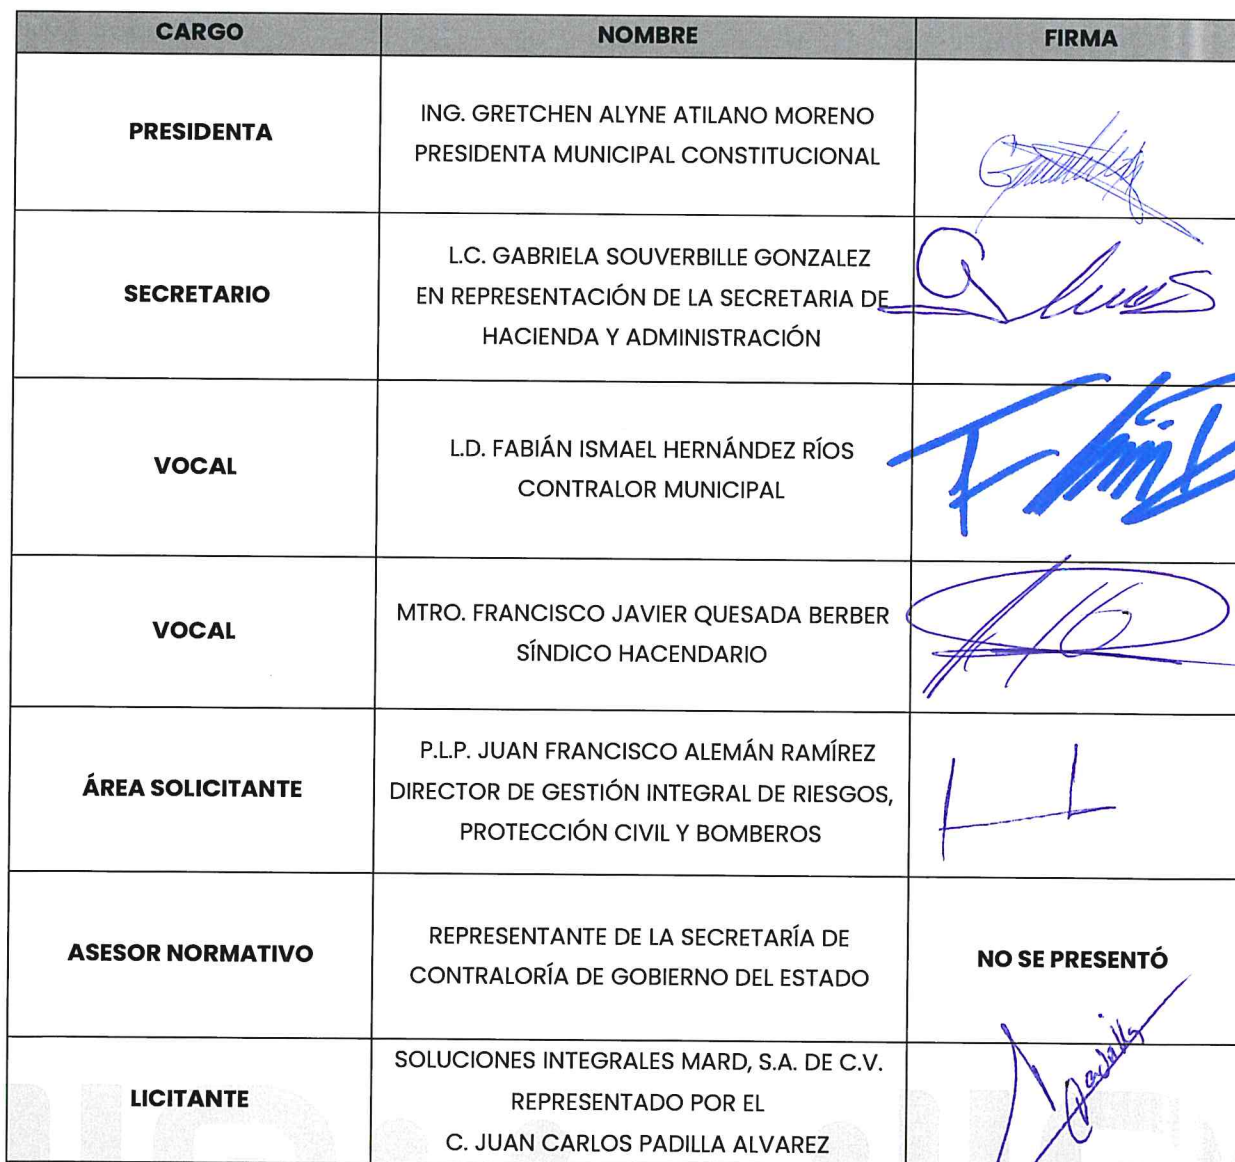 CARGO NOMBRE FIRMA
PRESIDENTA
ING. GRETCHEN ALYNE ATILANO MORENO
PRESIDENTA MUNICIPAL CONSTITUCIONAL
SECRETARIO
L.C. GABRIELA SOUVERBILLE GONZALEZ
EN REPRESENTACIÓN DE LA SECRETARIA DE
HACIENDA Y ADMINISTRACIÓN
VOCAL
L.D. FABIÁN ISMAEL HERNÁNDEZ RÍOS
CONTRALOR MUNICIPAL
VOCAL
MTRO. FRANCISCO JAVIER QUESADA BERBER
SÍNDICO HACENDARIO
ÁREA SOLICITANTE
P.L.P. JUAN FRANCISCO ALEMÁN RAMÍREZ
DIRECTOR DE GESTIÓN INTEGRAL DE RIESGOS,
PROTECCIÓN CIVIL Y BOMBEROS
ASESOR NORMATIVO
REPRESENTANTE DE LA SECRETARÍA DE
CONTRALORÍA DE GOBIERNO DEL ESTADO
NO SE PRESENTÓ
LICITANTE
SOLUCIONES INTEGRALES MARD, S.A. DE C.V.
REPRESENTADO POR EL
C. JUAN CARLOS PADILLA ALVAREZ